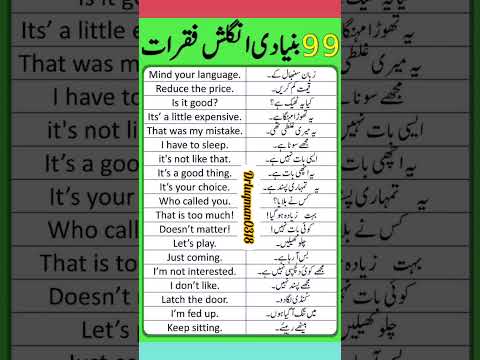 99 بنیادی انگلش فقرات
Mind your language. زبان سنبھال کے۔
Reduce the price. قیمت کم کریں۔
Is it good? کیا یہ ٹھیک ہے؟
Its' a little expensive. یہ تھوڑا مہنگا ہے۔
That was my mistake. یہ میری غلطی تھی۔
I have to sleep. مجھے سونا ہے۔
it's not like that. ایسی بات نہیں ہے۔
It's a good thing. یہ اچھی بات ہے۔
It's your choice. یہ تمہاری پسند ہے۔
Who called you. کس نے بلایا؟
That is too much! بہت زیادہ ہو گیا!
Doesn't matter! کوئی بات نہیں!
Let's play. چلو کھیلیں۔
Just coming. بس آ رہا ہے۔
I'm not interested. مجھے کوئی دلچسپی نہیں ہے۔
I don't like. مجھے پسند نہیں۔
Latch the door. کنڈی لگا دو۔
I'm fed up. میں تنگ آ گیا ہوں۔
Keep sitting. بیٹھے رہیئے۔
Drluqman0318